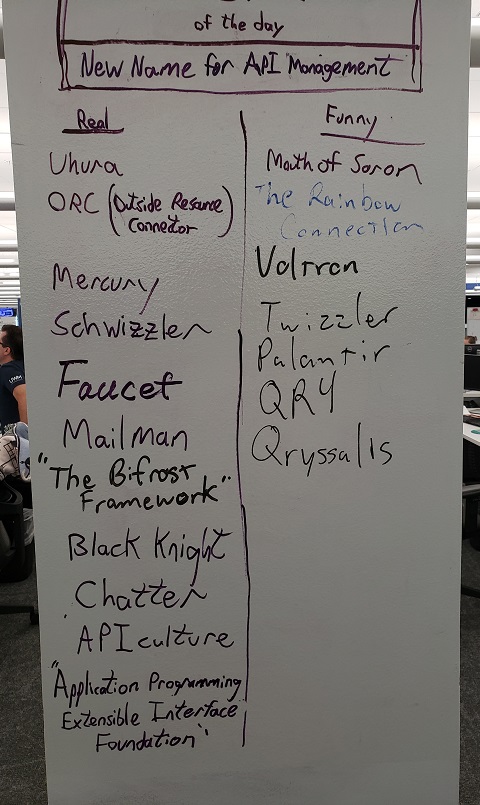 of the day
New Name for API Management
Real
Uhura
ORC (Outside Resource
Connector)
Mercury
Schwizzler
Faucet
Mailman
"The Bifrost
Framework"
Black Knight
Chatter
APIculture
"Application Programming
Extensible Interface
Foundation"
Funny
Mouth of Soron
The Rainbow
Connection
Voltron
Twizzler
Palantir
QRY
Qryssalis